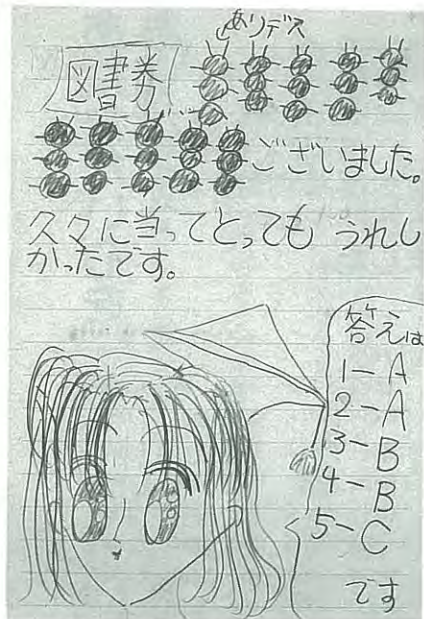 ありデス
図書券
ございました。
久々に当ってとっても うれし
かったです。
答えは
1-A
2-A
3-B
4-B
5-C
です